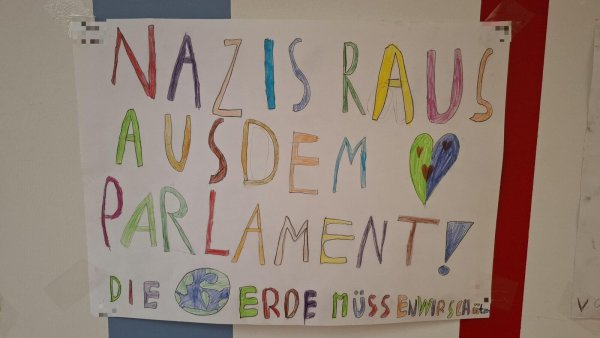 NAZIS RAUS
AUSDEM
PARLAMENT!
DIE ERDE MÜSSENWIR